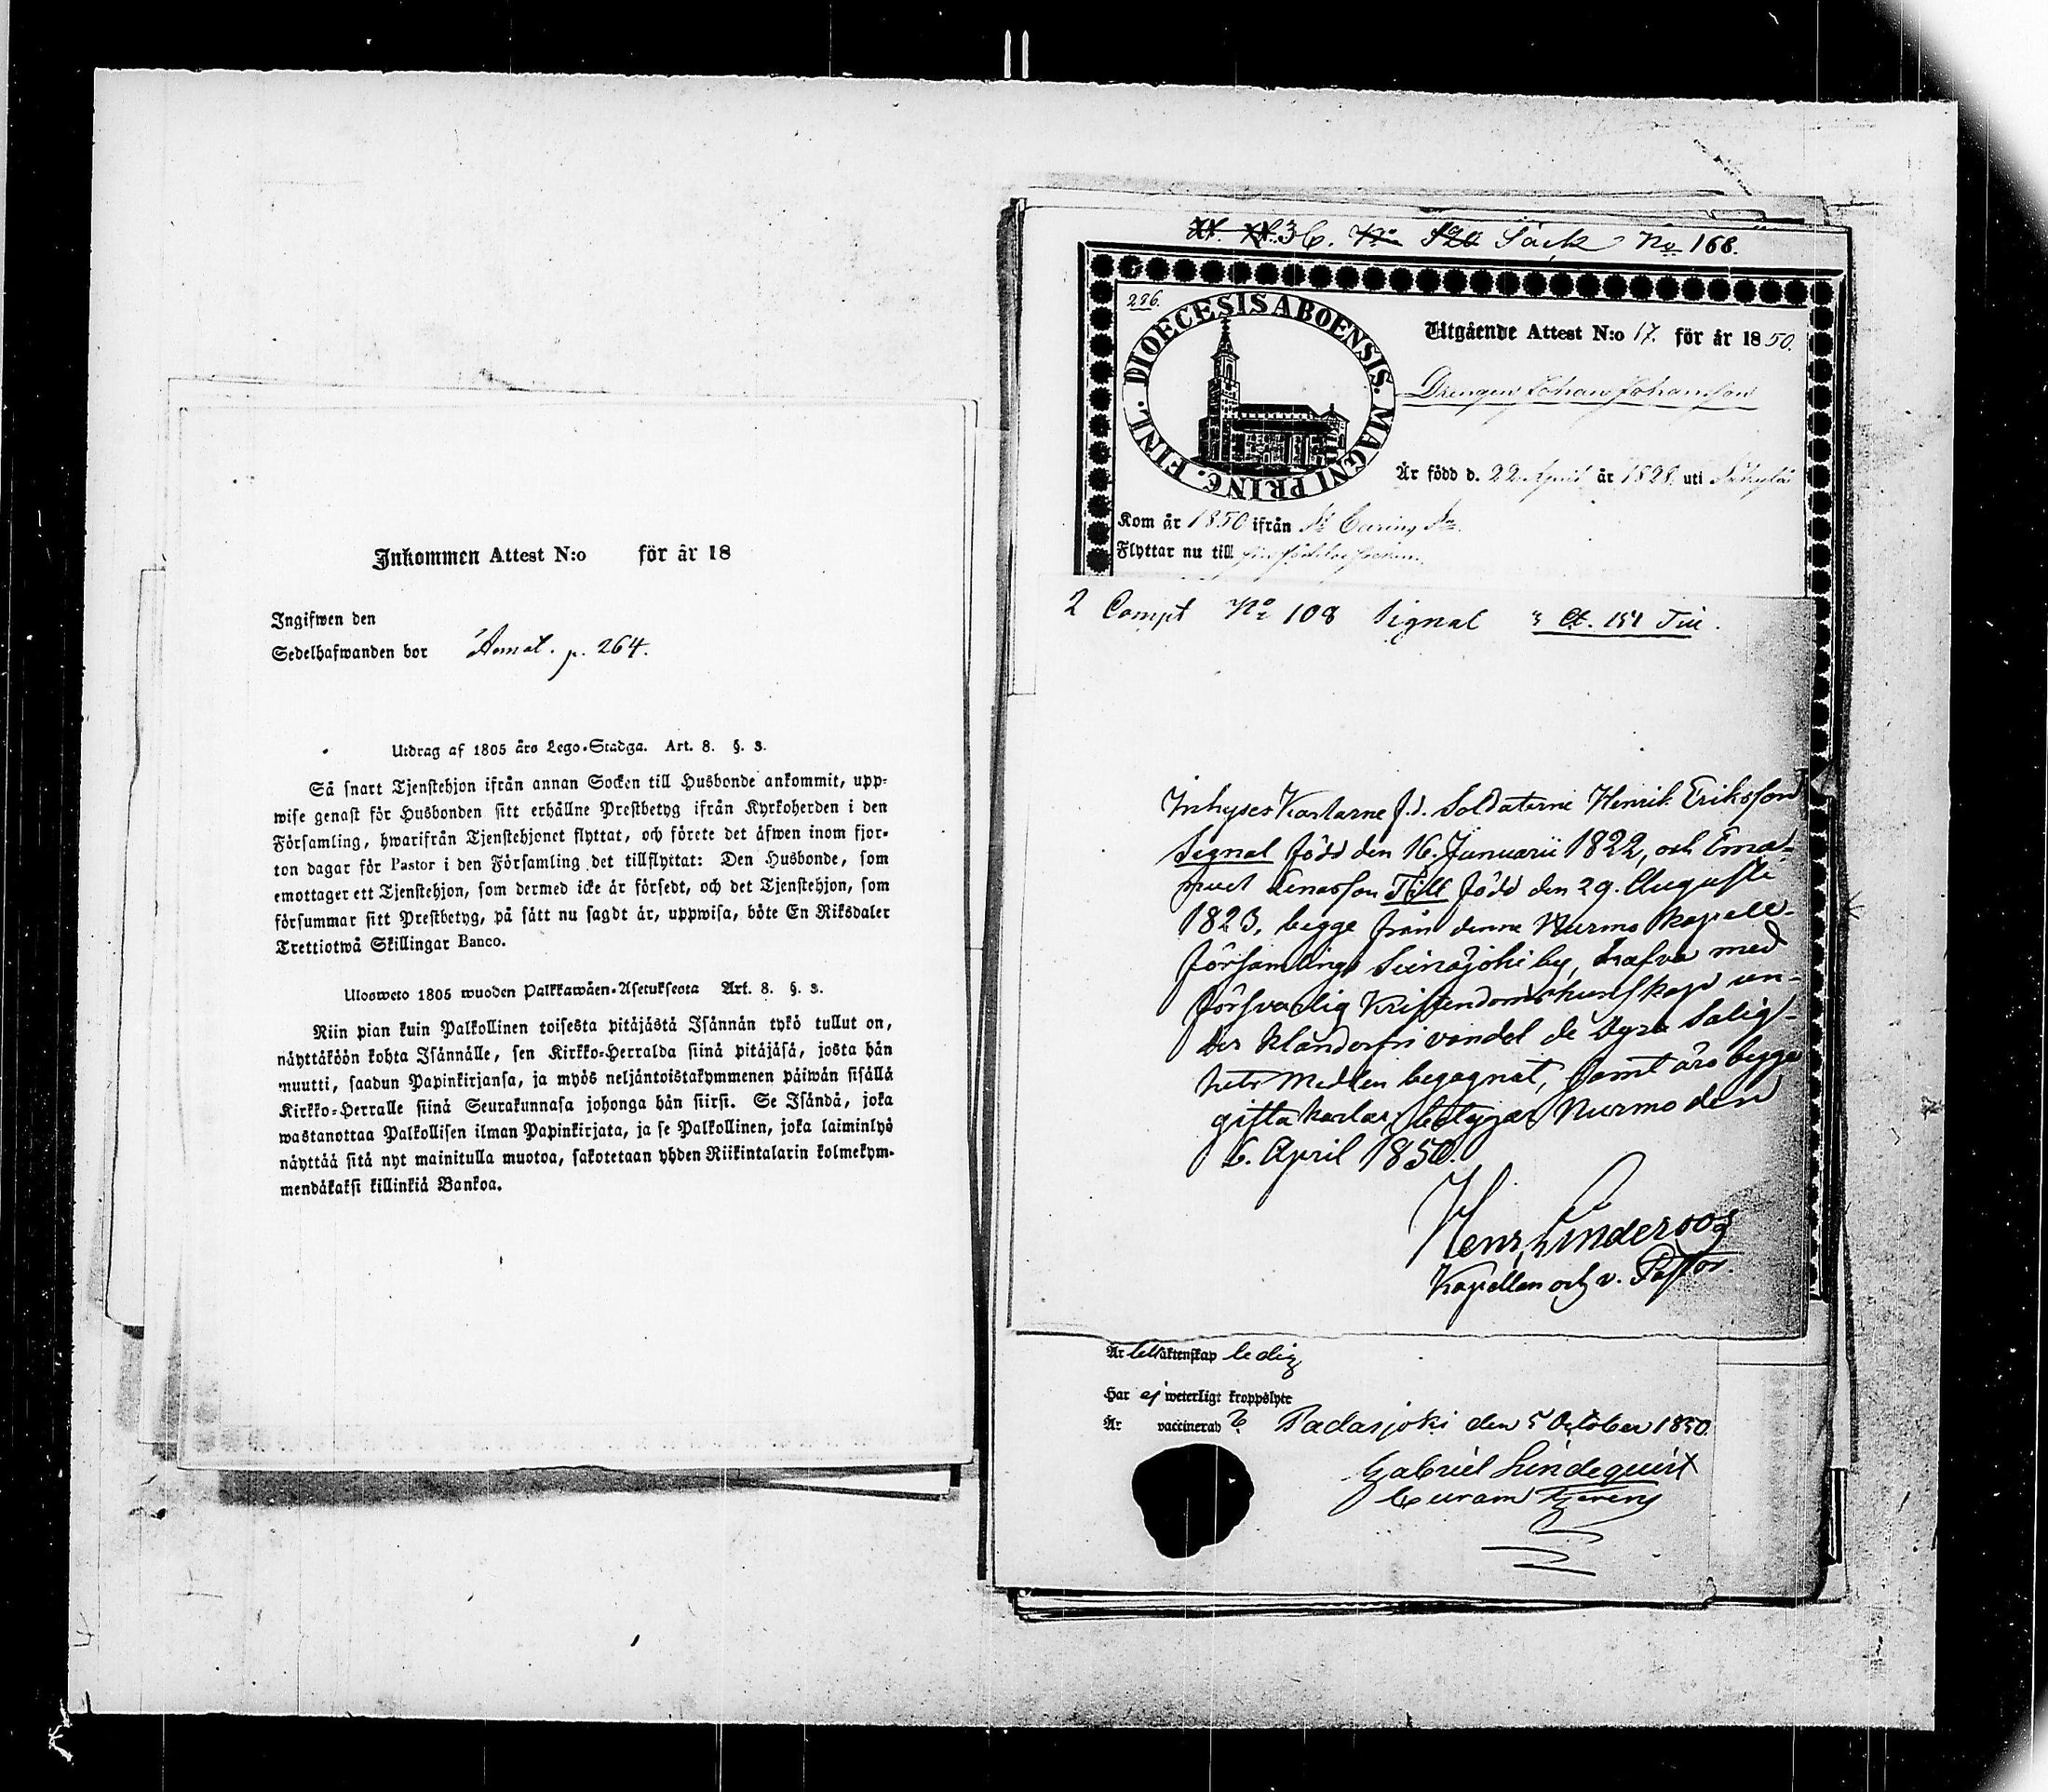 Inkommen Attest N:o för år 18
Ingifwen den
Sedelhafwanden bor p. 264.
Utdrag af 1805 års Lego-Stadga. Art. 8. §. 3.
Så snart Tjenstehjon ifrån annan Socken till Husbonde ankommit, upp-
wise genast för Husbonden sitt erhållne Prestbetyg ifrån Kyrkoherden i den
Församling, hwarifrån Tjenstehjonet flyttat, och förete det äfwen inom fjor-
ton dagar för Pastor i den Församling det tillflyttat: Den Husbonde, som
emottager ett Tjenstehjon, som dermed icke är försedt, och det Tjenstehjon, som
försummar sitt Prestbetyg, på sätt nu sagdt är, uppwisa, böte En Riksdaler
Trettiotwå Skillingar Banco.
Ulosweto 1805 wuoden Palkkawäen-Asetuksesta Art. 8. §. 3.
Niin pian kuin Palkollinen toisesta pitäjästä Isännän tykö tullut on,
näyttäköön kohta Isännälle, sen Kirkko-Herralda siinä pitäjäsä, josta hän
muutti, saadun Papinkirjansa, ja myös neljäntoistakymmenen päiwän sisällä
Kirkko-Herralle siinä Seurakunnasa johonga hän siirsi. Se Isändä, joka
wastanottaa Palkollisen ilman Papinkirjata, ja se Palkollinen, joka laiminlyö
näyttää sitä nyt mainitulla muotoa, sakotetaan yhden Riikintalarin kolmekym-
mendäkaksi killinkiä Bankoa.
36. Säck No 168.
226.
DIOECESIS ABOENSIS. MAGNI PRINC. FINL.
Utgående Attest N:o 17. för år 1850.
Drengen Johan Johansson
Är född d. 22 April år 1828 uti
Kom år 1850 ifrån
Flyttar nu till
2 Compt No 108 Signal 151
Inhyses Karlarne f.d. Soldaterne Henrik Eriksson
Signal född den 16. Januarii 1822, och Ema-
nuel Till född den 29. Augusti
1823, begge från denne Nurmo kapell-
församlings Seinäjoki by, hafva med
försvarlig Kristendomskunskap un-
der klanderfri vandel de Dyra Salig-
hets medlen begagnat, samt äro begge
gifta karlar; betygar Nurmo den
6. April 1850.
Henr. Linderoos
Kapellan och v. Pastor.
Är till äktenskap ledig
Har ej weterligt kroppslyte
Är vaccinerad Padasjoki den 5 October 1850.
Gabriel Lindequist
Curam Gerens